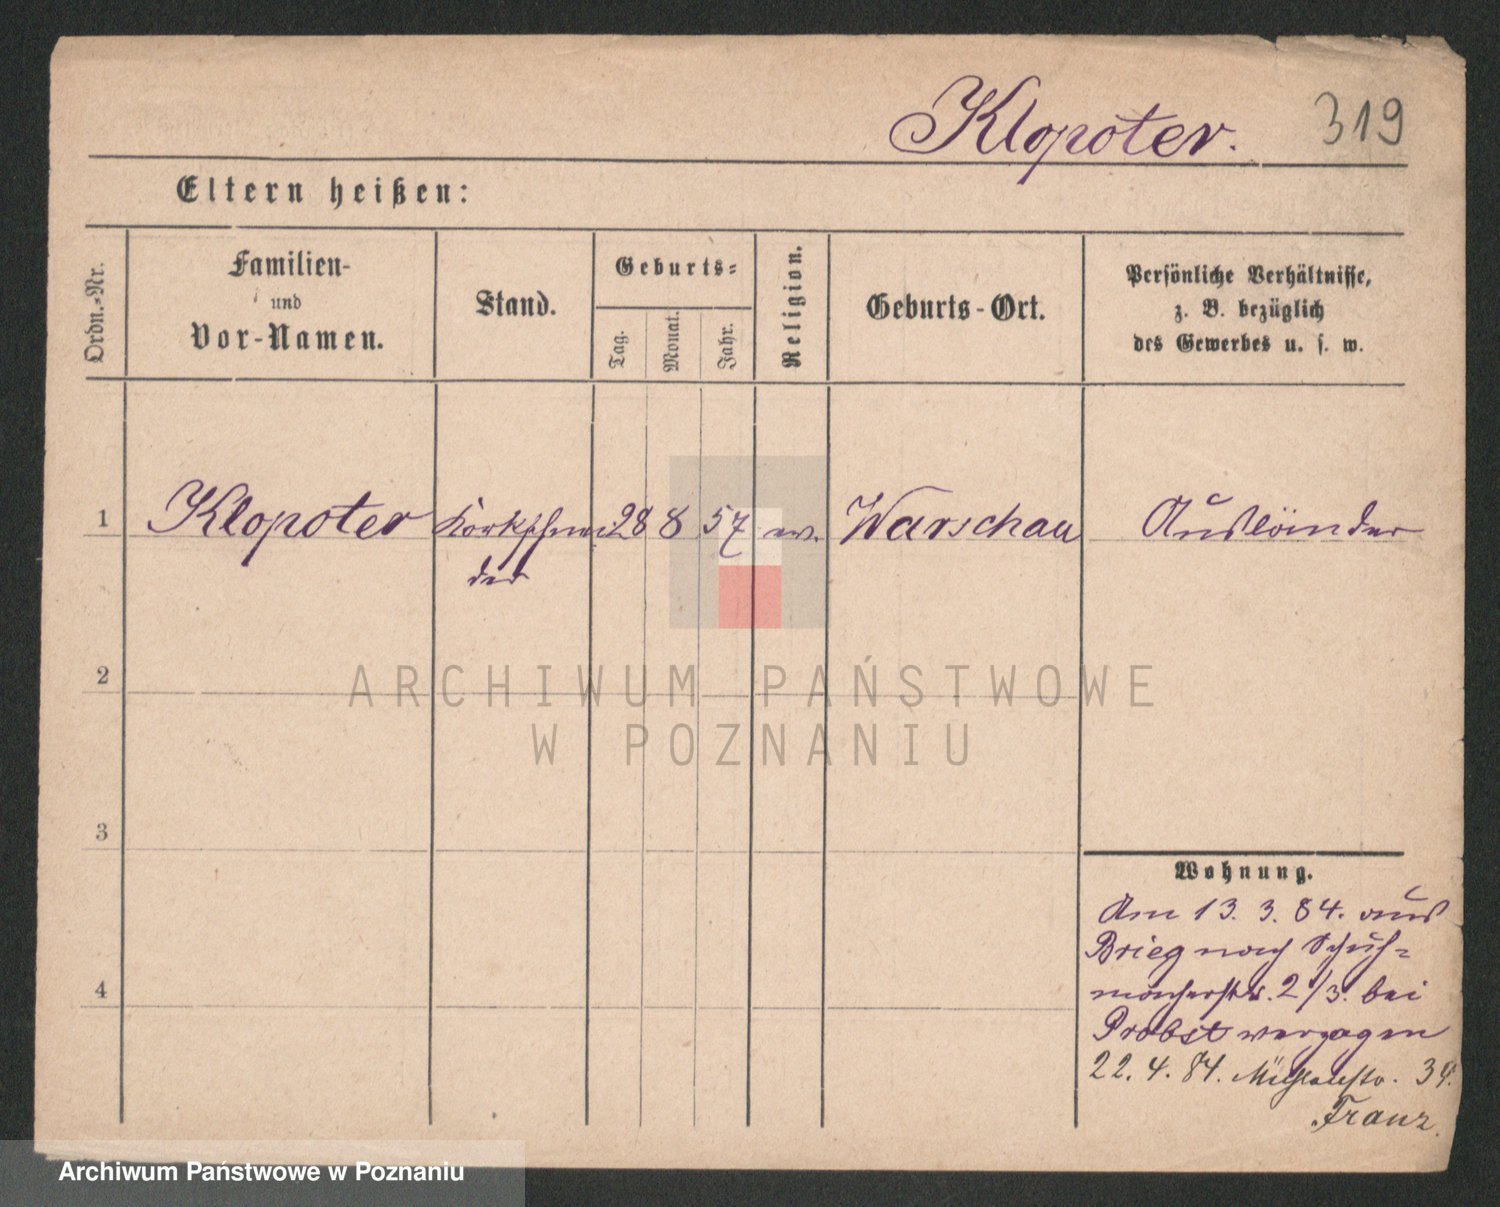 Klopoter. 319
Eltern heißen:
Ordn.-Nr.
Familien-
und
Vor-Namen.
Stand.
Geburts-
Tag.
Monat.
Jahr.
Religion.
Geburts-Ort.
Persönliche Verhältnisse,
z. B. bezüglich
des Gewerbes u. s. w.
1 Klopoter Korkschnei 28 8 57 ev. Warschau Ausländer
der
2
ARCHIWUM PAŃSTWOWE
W POZNANIU
3
Wohnung.
Am 13. 3. 84. aus
Brieg nach Schuh-
macherstr. 2/3. bei
4
Probst verzogen
22. 4. 84. 34.
Franz.
Archiwum Państwowe w Poznaniu